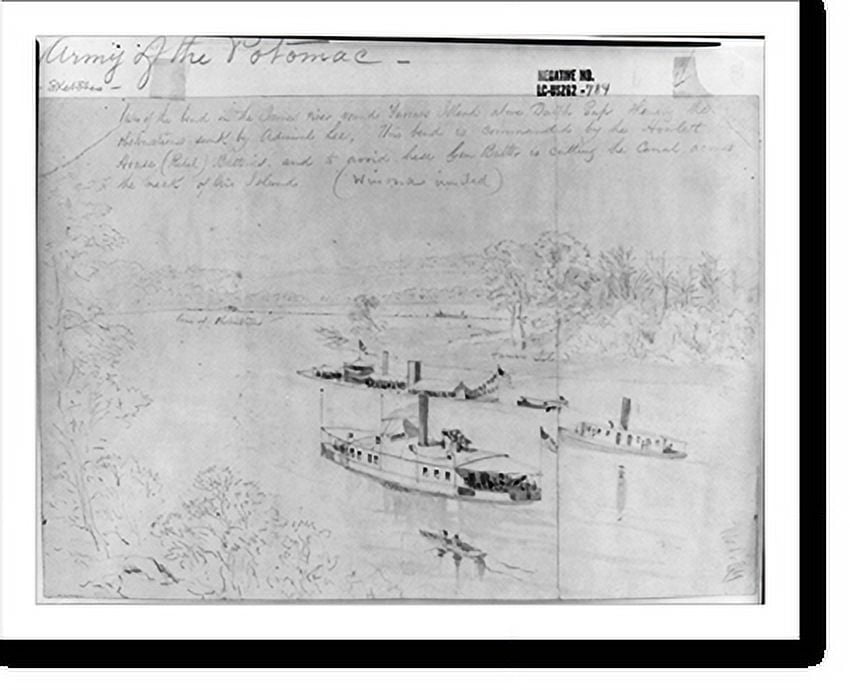 Army of the Potomac -
Sketches -
NEGATIVE NO.
LC-USZ62-784
View of the bend in the James river round Farrars Island above Dutch Gap Showing the
obstructions sunk by Admiral Lee. This bend is commanded by the Howlett
House (Rebel) Batteries, and to avoid these Gen Butler is cutting the Canal across
the neck of the Island. (Winser)
Line of Obstructions
Farrars Isl